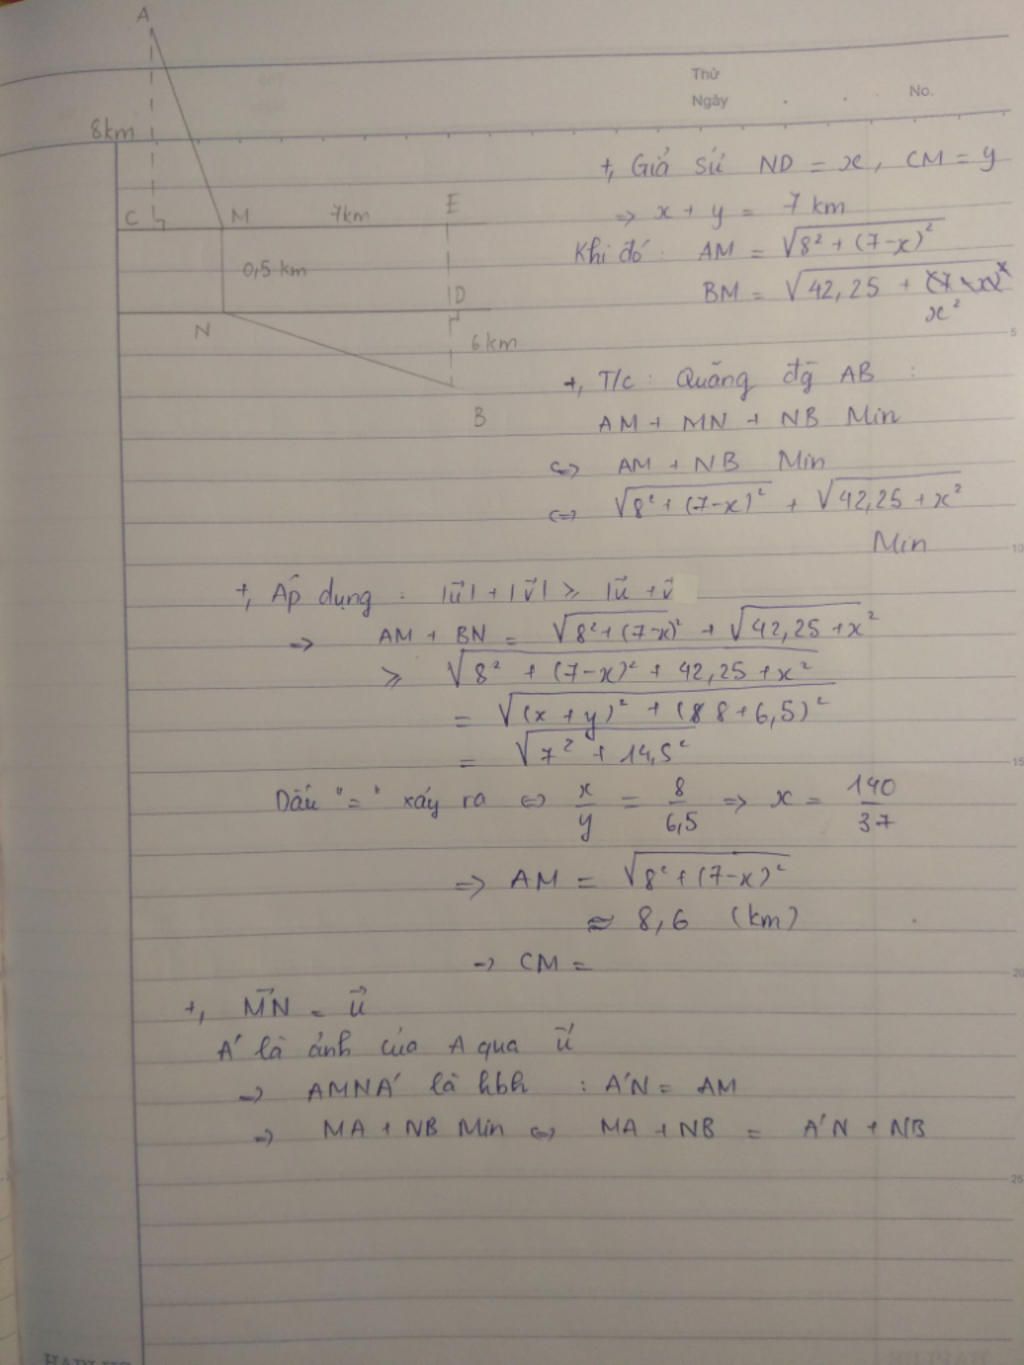 A
Thứ
Ngày
No.
8km
C
M
7km
E
0,5 km
D
N
6 km
B
+, Giả sử ND = x, CM = y
=> x + y = 7 km
Khi đó: AM = √8² + (7-x)²
BM = √42,25 + x²
+, T/c: Quãng đg AB :
AM + MN + NB Min
<=> AM + NB Min
<=> √8² + (7-x)² + √42,25 + x²
Min
+, Áp dụng : |u⃗| + |v⃗| ≥ |u⃗ + v⃗
=> AM + BN = √8² + (7-x)² + √42,25 + x²
≥ √8² + (7-x)² + 42,25 + x²
= √(x + y)² + (8 8 + 6,5)²
= √7² + 14,5²
Dấu "=" xảy ra <=> x/y = 8/6,5 => x = 140/37
=> AM = √8² + (7-x)²
≈ 8,6 (km)
-> CM =
+, M⃗N = u⃗
A' là ảnh của A qua u⃗
=> AMNA' là hbh : A'N = AM
=> MA + NB Min <=> MA + NB = A'N + NB
5
10
15
20
25